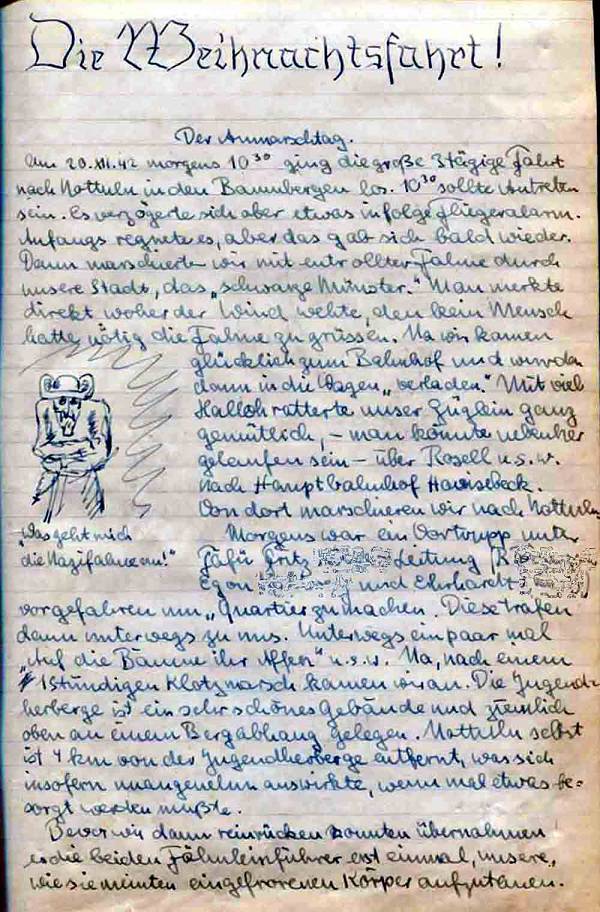 Die Weihnachtsfahrt!
Der Anmarschtag.
Am 20.XII.42 morgens 10³⁰ ging die große 3tägige Fahrt
nach Nottuln in den Baumbergen los. 10³⁰ sollte Antreten
sein. Es verzögerte sich aber etwas infolge Fliegeralarm.
Anfangs regnete es, aber das gab sich bald wieder.
Dann marschierten wir mit entrollter Fahne durch
unsere Stadt, das „schwarze Münster." Man merkte
direkt woher der Wind wehte, den kein Mensch
hatte nötig die Fahne zu grüssen. Na wir kamen
glücklich zum Bahnhof und wurden
dann in die Wagen „verladen." Mit viel
Halloh ratterte unser Züglein ganz
gemütlich, – man könnte nebenher
gelaufen sein – über Roxell u.s.w.
nach Hauptbahnhof Havixbeck.
Von dort marschieren wir nach Nottuln.
„Was geht mich
die Nazifahne an!"
Morgens war ein Vortrupp unter
Fäfü Fritz Leitung
Egon und Ehrhardt
vorgefahren um „Quartier zu machen. Diese trafen
dann unterwegs zu uns. Unterwegs ein paar mal
„Auf die Bäume ihr Affen" u.s.w. Na, nach einem
1stündigen Klotzmarsch kamen wir an. Die Jugend-
herberge ist ein sehr schönes Gebäude und ziemlich
oben an einem Bergabhang gelegen. Nottuln selbst
ist 4 km von der Jugendherberge entfernt, was sich
insofern unangenehm auswirkte, wenn mal etwas be=
sorgt werden mußte.
Bevor wir dann reinrücken konnten übernahmen
es die beiden Fähnleinführer erst einmal, unsere,
wie sie meinten eingefrorenen Körper aufzutauen.